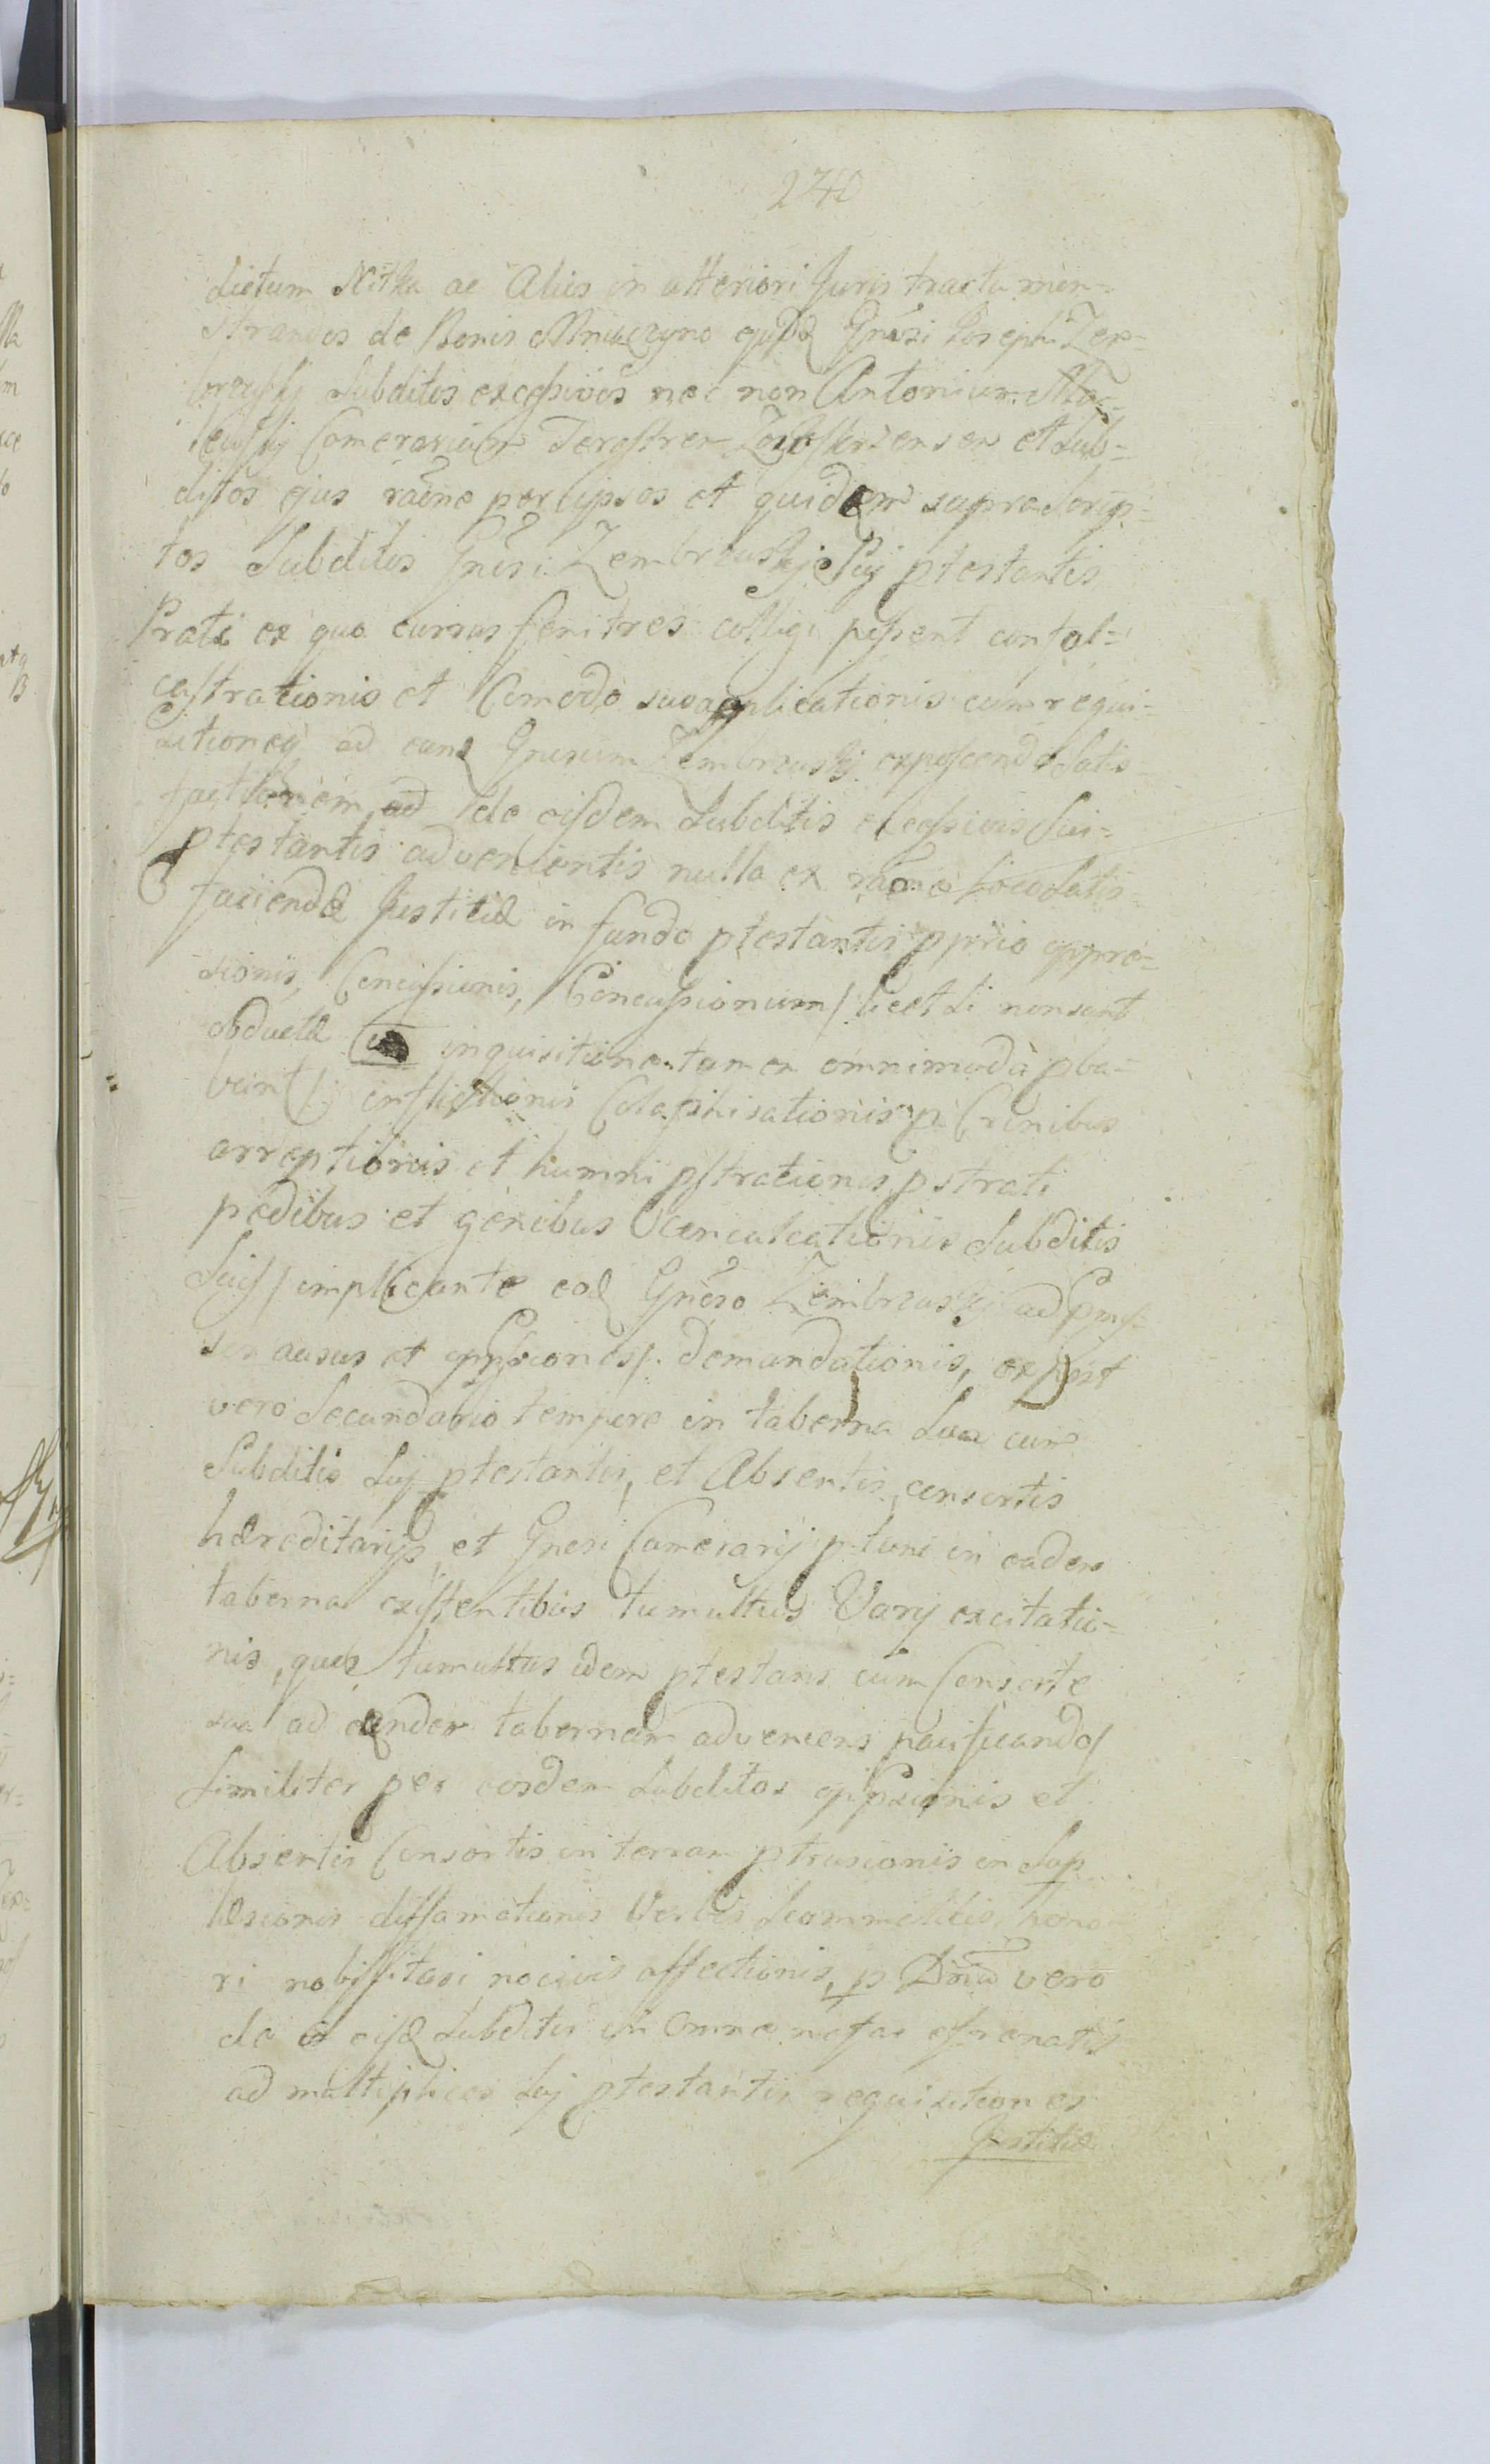 240
dictum Nitka ac Alios in ulteriori Juris tractu mon=
strandos de Bonis Mniuszyno ejusd Gnosi Joseph Zem=
brzuskj Subditos excessivos nec non Antonium
Comerarium Terestrem et Sub=
ditos ejus raone per ipsos et quidem suprascrip=
tos Subditos Gnosi Zembrzuskj Suj ptestantis
Prati ex quo currus feni tres colligi possent confal=
castrationis et Comodo suo applicationis cum requi=
sitione ad eund Gnosum Zembrzuskj exposcendo Satis=
factionem ad de eisdem Subditis excessivis Sui=
ptestantis advenientis nulla ex raone Satis=
faciendæ Justitiæ in fundo ptestantis pprio oppre=
sionis, Concisionis, Concussionum / licet li non sunt
obductæ inquisitione tamen omnimoda pba=
bunt / inflictionis Colaphisationis p Crinibus
arreptionis et humni pstrationis pstrati
pedibus et genibus Conculcationis Subditis
Suis / implicante eod Gnoso Zembrzuskj ad
ausus et oppsiones /. demandationis, ex post
vero Secundario tempore in taberna Sua cum
Subditis Suj ptestantis, et Absentis consortis
hæreditarijs et Gnosi Camerarij p tunc in eadem
taberna existentibus tumultus Varij excitatio=
nis, quos tumultus idem ptestans cum Consorte
sua ad eandem tabernam adveniens pacificando /
Similiter per eosdem Subditos oppsionis et
Absentis Consortis in terram ptrusionis in Sup
læsionis diffamationis Verbis Scommaticis hono
ri nobilitari nocivis affectionis, p Dnum vero
de eisd Subditis in Omne nefas efrenatis
ad multiplices Suj ptestantis requisitiones
Justitiæ